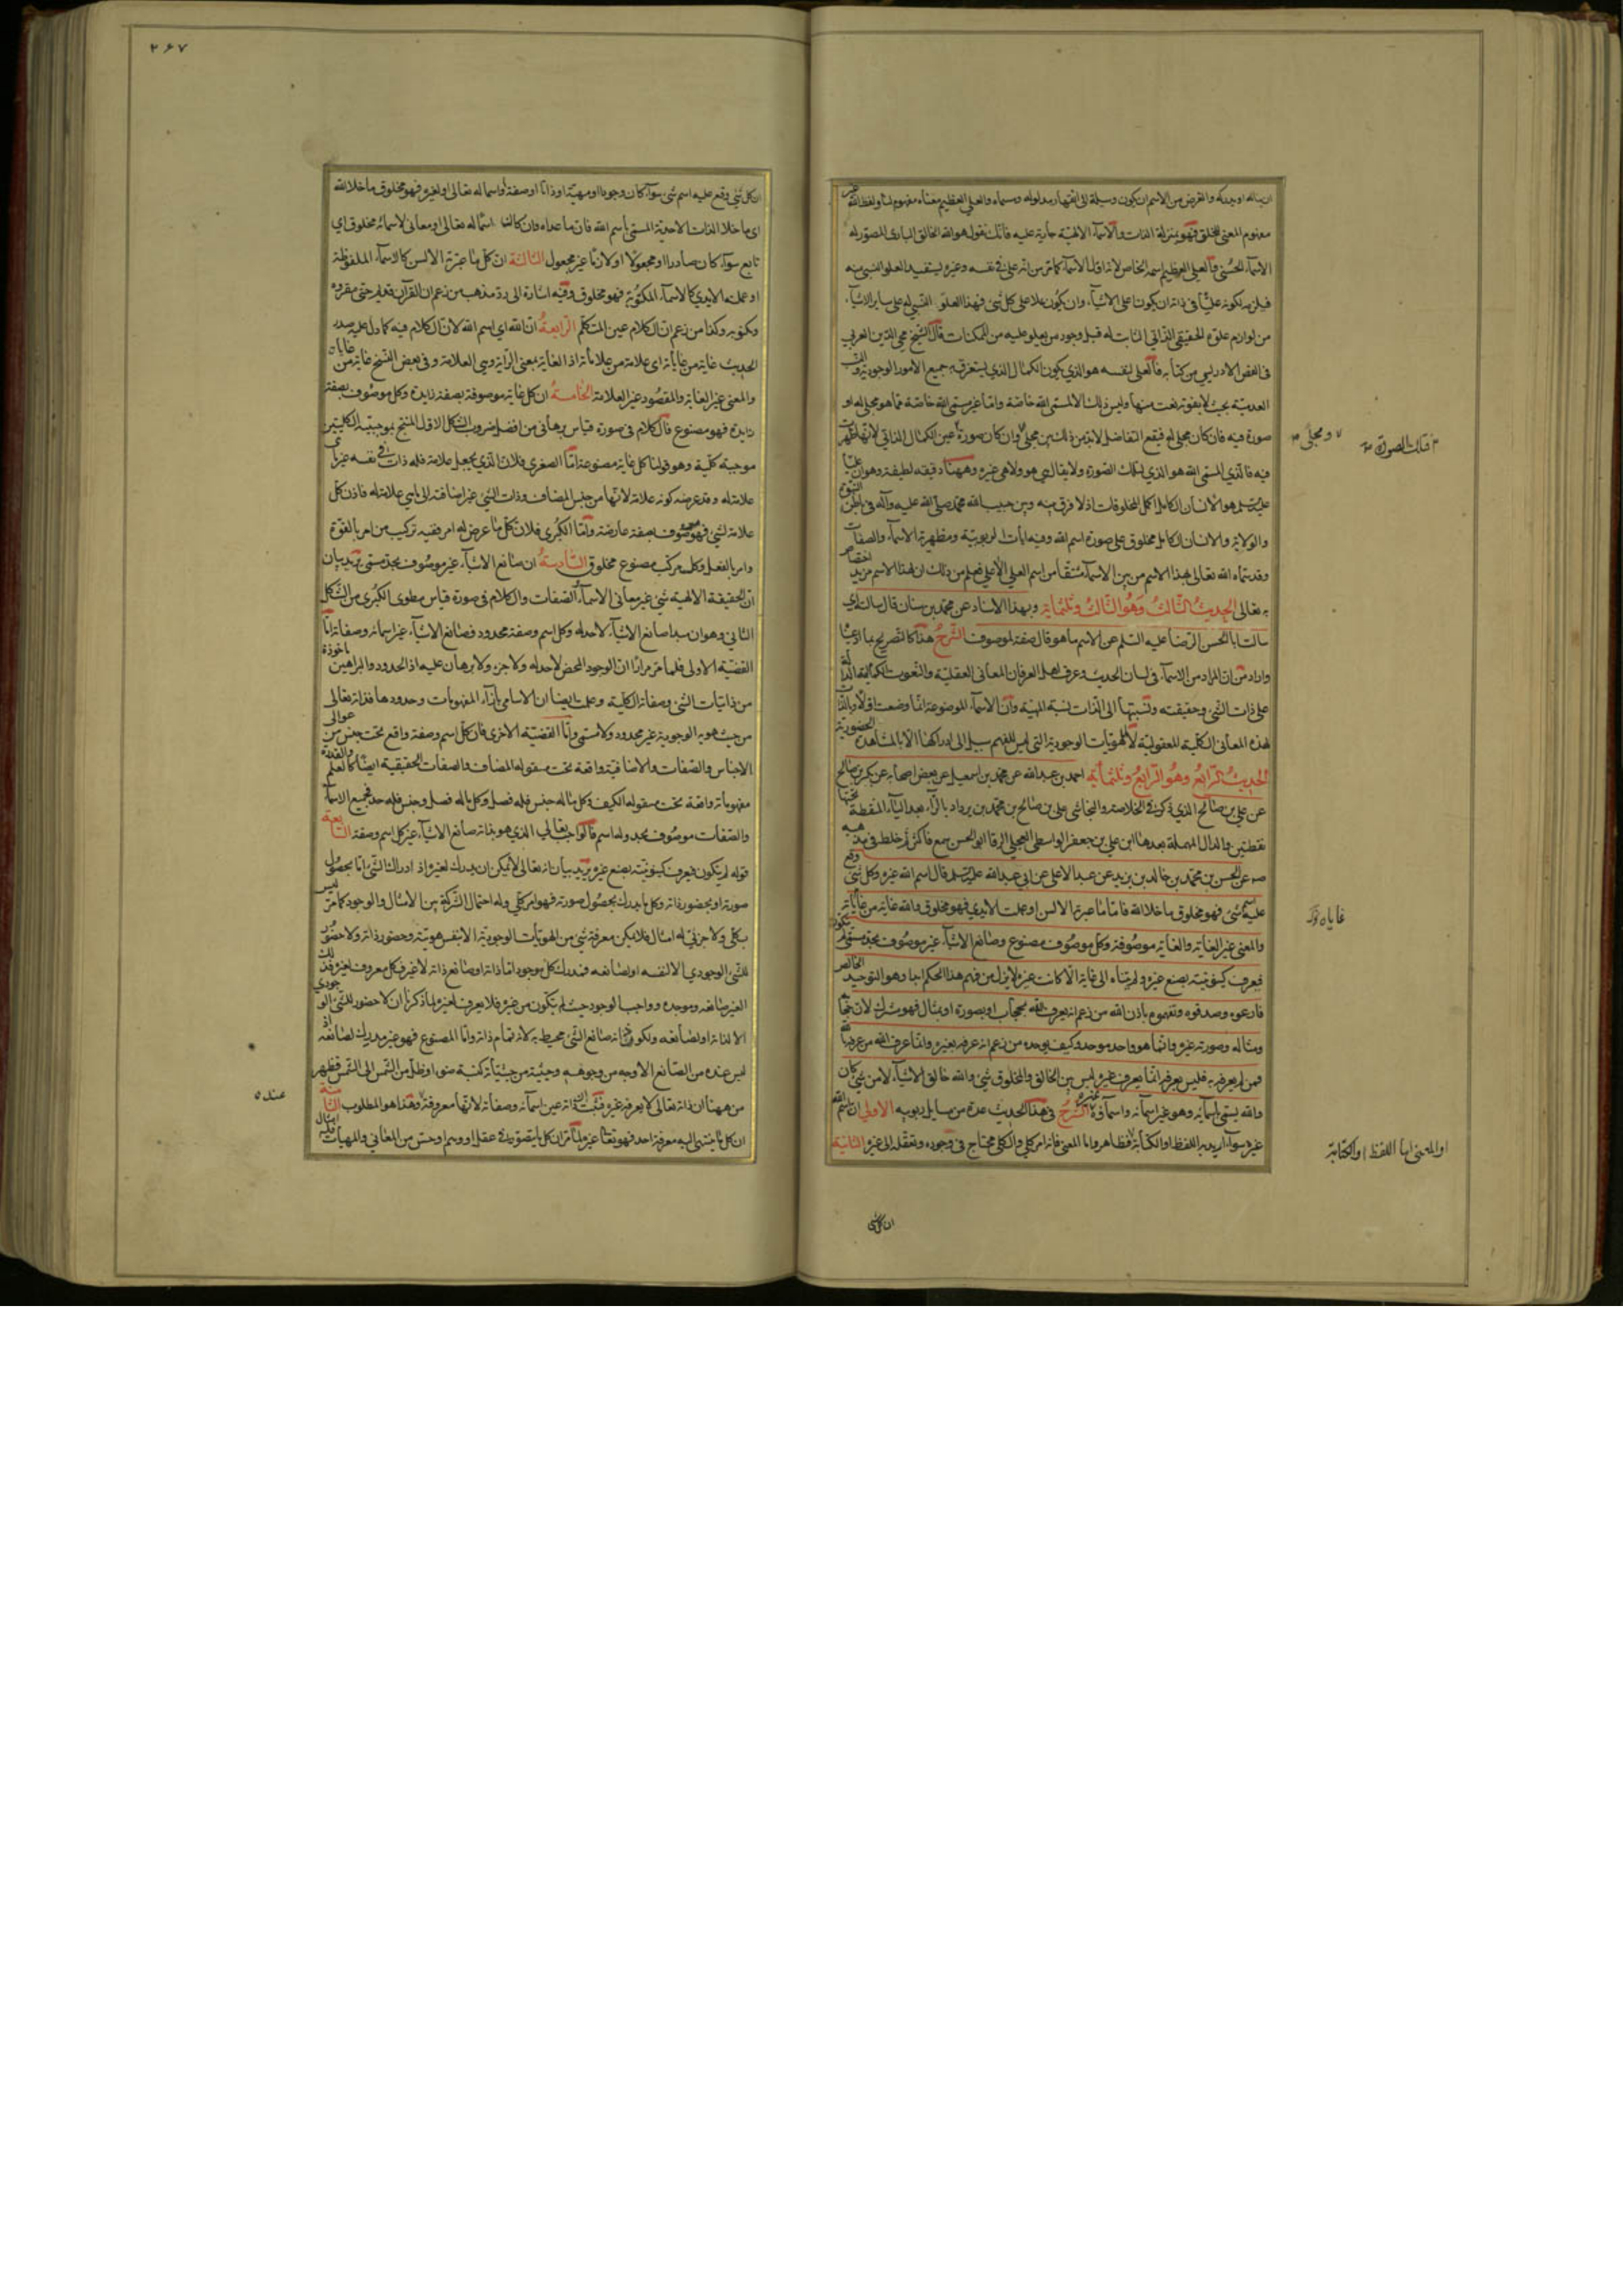 ان يناله او يدركه والغرض من الاسم ان يكون وسيلة الى الفهم مدلوله ومسماه والعلي العظيم معناه مفهوم لنا ولفظ الله غير
مفهوم المعنى للخلق فهو بمنزلة الذات والاسماء الالهية جارية عليه فانك تقول هو الله الخالق البارئ المصور له
الاسماء الحسنى فالعلي العظيم اسمه الخاص لانه اول الاسماء كما مر من انه علي في نفسه وغيره يستفيد العلو النسبي منه
فيلزمه لكونه عليا في ذاته ان يكون اعلى الاشياء وان يكون علا على كل شئ فهذا العلو النسبي له على ساير الاشياء
من لوازم علوه الحقيقي الذاتي الثابت له قبل وجود من يعلو عليه من الممكنات قال الشيخ محيي الدين العربي
في الفص الادريسي من كتابه فالعلي لنفسه هو الذي يكون الكمال الذي يستغرق به جميع الامور الوجودية والنسب
العدمية بحيث لا يفوته نعت منها وليس ذلك الا لمسمى الله خاصة واما غير مسمى الله خاصة مما هو مجلى له او
صورة فيه فان كان مجلى له فيقع التفاضل لا بد من ذلك بين مجلى وان كان صورة عين الكمال الذاتي لانها ظهرت
فيه فالذي لمسمى الله هو الذي لتلك الصورة ولا يقال هي هو ولا هي غيره وههنا دقيقة لطيفة وهو ان عليا
عليه السلم هو الانسان الكامل اكمل المخلوقات اذ لا فرق بينه وبين حبيب الله محمد صلى الله عليه وآله في باطن النبوة
والولاية والانسان الكامل مخلوق على صورة اسم الله وفيه آيات الربوبية ومظهرية الاسماء والصفات
وقد سماه الله تعالى بهذا الاسم من بين الاسماء مشتقا من اسم العلي الاعلى فعلم من ذلك ان لهذا الاسم مزيد اختصاص
به تعالى الحديث الثالث وهو الثالث وثلثمائة وبهذا الاسناد عن محمد بن سنان قال سالته اي
سالت ابا الحسن الرضا عليه السلم عن الاسم ما هو قال صفة لموصوف الشرح هذا كالتصريح بما ادعينا
واراد من ان المراد من الاسماء في لسان الحديث وعرف اهل العرفان المعاني العقلية والنعوت الكمالية الدالة
على ذات الشئ وحقيقته ونسبتها الى الذات نسبة المهية وان الاسماء الموضوعة انما وضعت اولا وبالذات
لهذه المعاني الكلية المعقولية لا للهويات الوجودية التي ليس للفهم سبيل الى ادراكها الا بالمشاهدة الحضورية
الحديث الرابع وهو الرابع وثلثمائة احمد بن عبد الله عن محمد بن اسمعيل عن بعض اصحابه عن بكر بن صالح
عن علي بن صالح الذي ذكر في الخلاصة والنجاشي علي بن صالح بن محمد بن يزداد بالراء بعد الياء المنقطة تحتها
نقطتين والدال المهملة بعدها ابن علي بن جعفر الواسطي العجلي الرفا ابو الحسن سمع فاكثر ثم خلط في مذهبه
صه عن الحسن بن محمد بن خالد بن يزيد عن عبد الاعلى عن ابي عبد الله عليه السلم قال اسم الله غيره وكل شئ وقع
عليه اسم شئ فهو مخلوق ما خلا الله فاما ما عبرته الالسن او عملت الايدي فهو مخلوق والله غاية من غاياته
والمعنى غير الغاية والغاية موصوفة وكل موصوف مصنوع وصانع الاشياء غير موصوف بحد مسمى لم يتكون
فيعرف كينونيته بصنع غيره ولم يتناه الى غاية الا كانت غيره لا يزل من فهم هذا الحكم ابدا وهو التوحيد الخالص
فارعوه وصدقوه وتفهموه باذن الله من زعم انه يعرف الله بحجاب او بصورة او بمثال فهو مشرك لان حجابه
ومثاله وصورته غيره وانما هو واحد موحد وكيف يوحده من زعم انه عرفه بغيره وانما عرف الله من عرفه بالله
فمن لم يعرفه به فليس يعرفه انما يعرف غيره ليس بين الخالق والمخلوق شئ والله خالق الاشياء لا من شئ كان
والله يسمى باسمائه وهو غير اسمائه واسماؤه غيره الشرح في هذا الحديث عدة من مسايل ربوبيه الاولى ان اسم الله
غيره سواء اريد به اللفظ او الكتابة فظاهر واما المعنى فانه امر كلي والكلي محتاج في وجوده وتعقله الى غيره الثانية
ومجلى
فتلك الصورة
غاياه
او المعنى اما اللفظ او الكتابة
ان كل شئ
٢٦٧
ان كل شئ وقع عليه اسم شئ سواء كان وجودا او مهية او ذاتا او صفة او اسما له تعالى او لغيره فهو مخلوق ما خلا الله
اي ما خلا الذات الاحدية المسمى باسم الله فان ما عداه وان كانت اسماء له تعالى او معاني لاسمائه مخلوق اي
تابع سواء كان صادرا او مجعولا او لازما غير مجعول الثالثة ان كل ما عبرته الالسن كالاسماء الملفوظة
او عملته الايدي كالاسماء المكتوبة فهو مخلوق وفيه اشارة الى رد مذهب من زعم ان القرآن قديم حتى مقروه
ومكتوبه وكذا من زعم ان الكلام عين المتكلم الرابعة ان الله اي اسم الله لان الكلام فيه كما دل عليه صدر
الحديث غاية من غاياته اي علامة من علاماته اذ الغاية بمعنى الراية وهي العلامة وفي بعض النسخ غاية من غاياه
والمعنى غير الغاية والمقصود غير العلامة الخامسة ان كل غاية موصوفة بصفة زايدة وكل موصوف بصفة
زايدة فهو مصنوع فالكلام في صورة قياس برهاني من افضل ضروب الشكل الاول المنتج بموجبتيه الكليتين
موجبة كلية وهو قولنا كل غاية مصنوعة اما الصغرى فلان الذي يجعل علامة فله ذات في نفسه غير
علامة له وقد عرضه كونه علامة لانها من جنس المضاف وذات الشئ غير اضافته الى ما هي علامة له فاذن كل
علامة لشئ فهو موصوف بصفة عارضة واما الكبرى فلان كل ما عرض له امر ففيه تركيب من امر بالقوة
وامر بالفعل وكل مركب مصنوع مخلوق السادسة ان صانع الاشياء غير موصوف بحد مسمى يريد بيان
ان الحقيقة الالهية شئ غير معاني الاسماء والصفات والكلام في صورة قياس مطوي الكبرى من الشكل
الثاني وهو ان مبدا صانع الاشياء لا حد له وكل اسم وصفة محدود فصانع الاشياء غير اسمائه وصفاته اما
القضية الاولى فلما مر مرارا ان الوجود المحض لا حد له ولا جزء ولا برهان عليه اذ الحدود والبراهين ماخوذة
من ذاتيات الشئ وصفاته الكلية وعلمت ايضا ان الاسامي بازاء المفهومات وحدودها فذاته تعالى
من حيث هويته الوجودية غير محدود ولا مسمى واما القضية الاخرى فان كل اسم وصفة واقع تحت جنس من عوالي
الاجناس والصفات والاضافية واقعة تحت مقولة المضاف والصفات الحقيقية ايضا كالعلم والقدرة
مفهوماته واقعة تحت مقولة الكيف وكل ما له جنس فله فصل وكل ما له فصل وجنس فله حد فجميع الاسماء
والصفات موصوف بحد ولها اسم فالواجب تعالى الذي هو بذاته صانع الاشياء غير كل اسم وصفة السابعة
قوله لم يتكون فيعرف كينونيته بصنع غيره يريد بيان انه تعالى لا يمكن ان يدرك لغيره اذ ادراك الشئ اما بحصول
صورته او بحضور ذاته وكل ما يدرك بحصول صورته فهو امر كلي وله احتمال الشركة بين الامثال والوجود كما مر ليس
بكلي ولا جزئي له امثال فلا يمكن معرفة شئ من الهويات الوجودية الا بنفس هويته وحضور ذاته ولا حضور
للشئ الوجودي الا لنفسه او لصانعه فمدرك كل موجود اما ذاته او صانع ذاته لا غير فكل معروف لغيره فذلك
الغير صانعه وموجده وواجب الوجود حيث لم يتكون من غيره فلا يعرف لغيره لما ذكرنا ان لا حضور للشئ الوجودي
الا لذاته او لصانعه ولكون ذاته صانع الشئ محيط به لانه تمام ذاته واما المصنوع فهو غير مدرك لصانعه اذ
ليس عنده من الصانع الا وجه من وجوهه وحيثية من حيثياته كنسبة ضوء او ظل من الشمس الى الشمس فظهر
من ههنا ان ذاته تعالى لا يعرفه غيره فثبت ان ذاته غير اسمائه وصفاته لانها معروفة وهذا هو المطلوب الثامنة
ان كل ما ينتهي اليه معرفة احد فهو تعالى غيره لما مر ان كل ما يتصور في عقل او وهم او حس من المعاني والمهيات
عنده